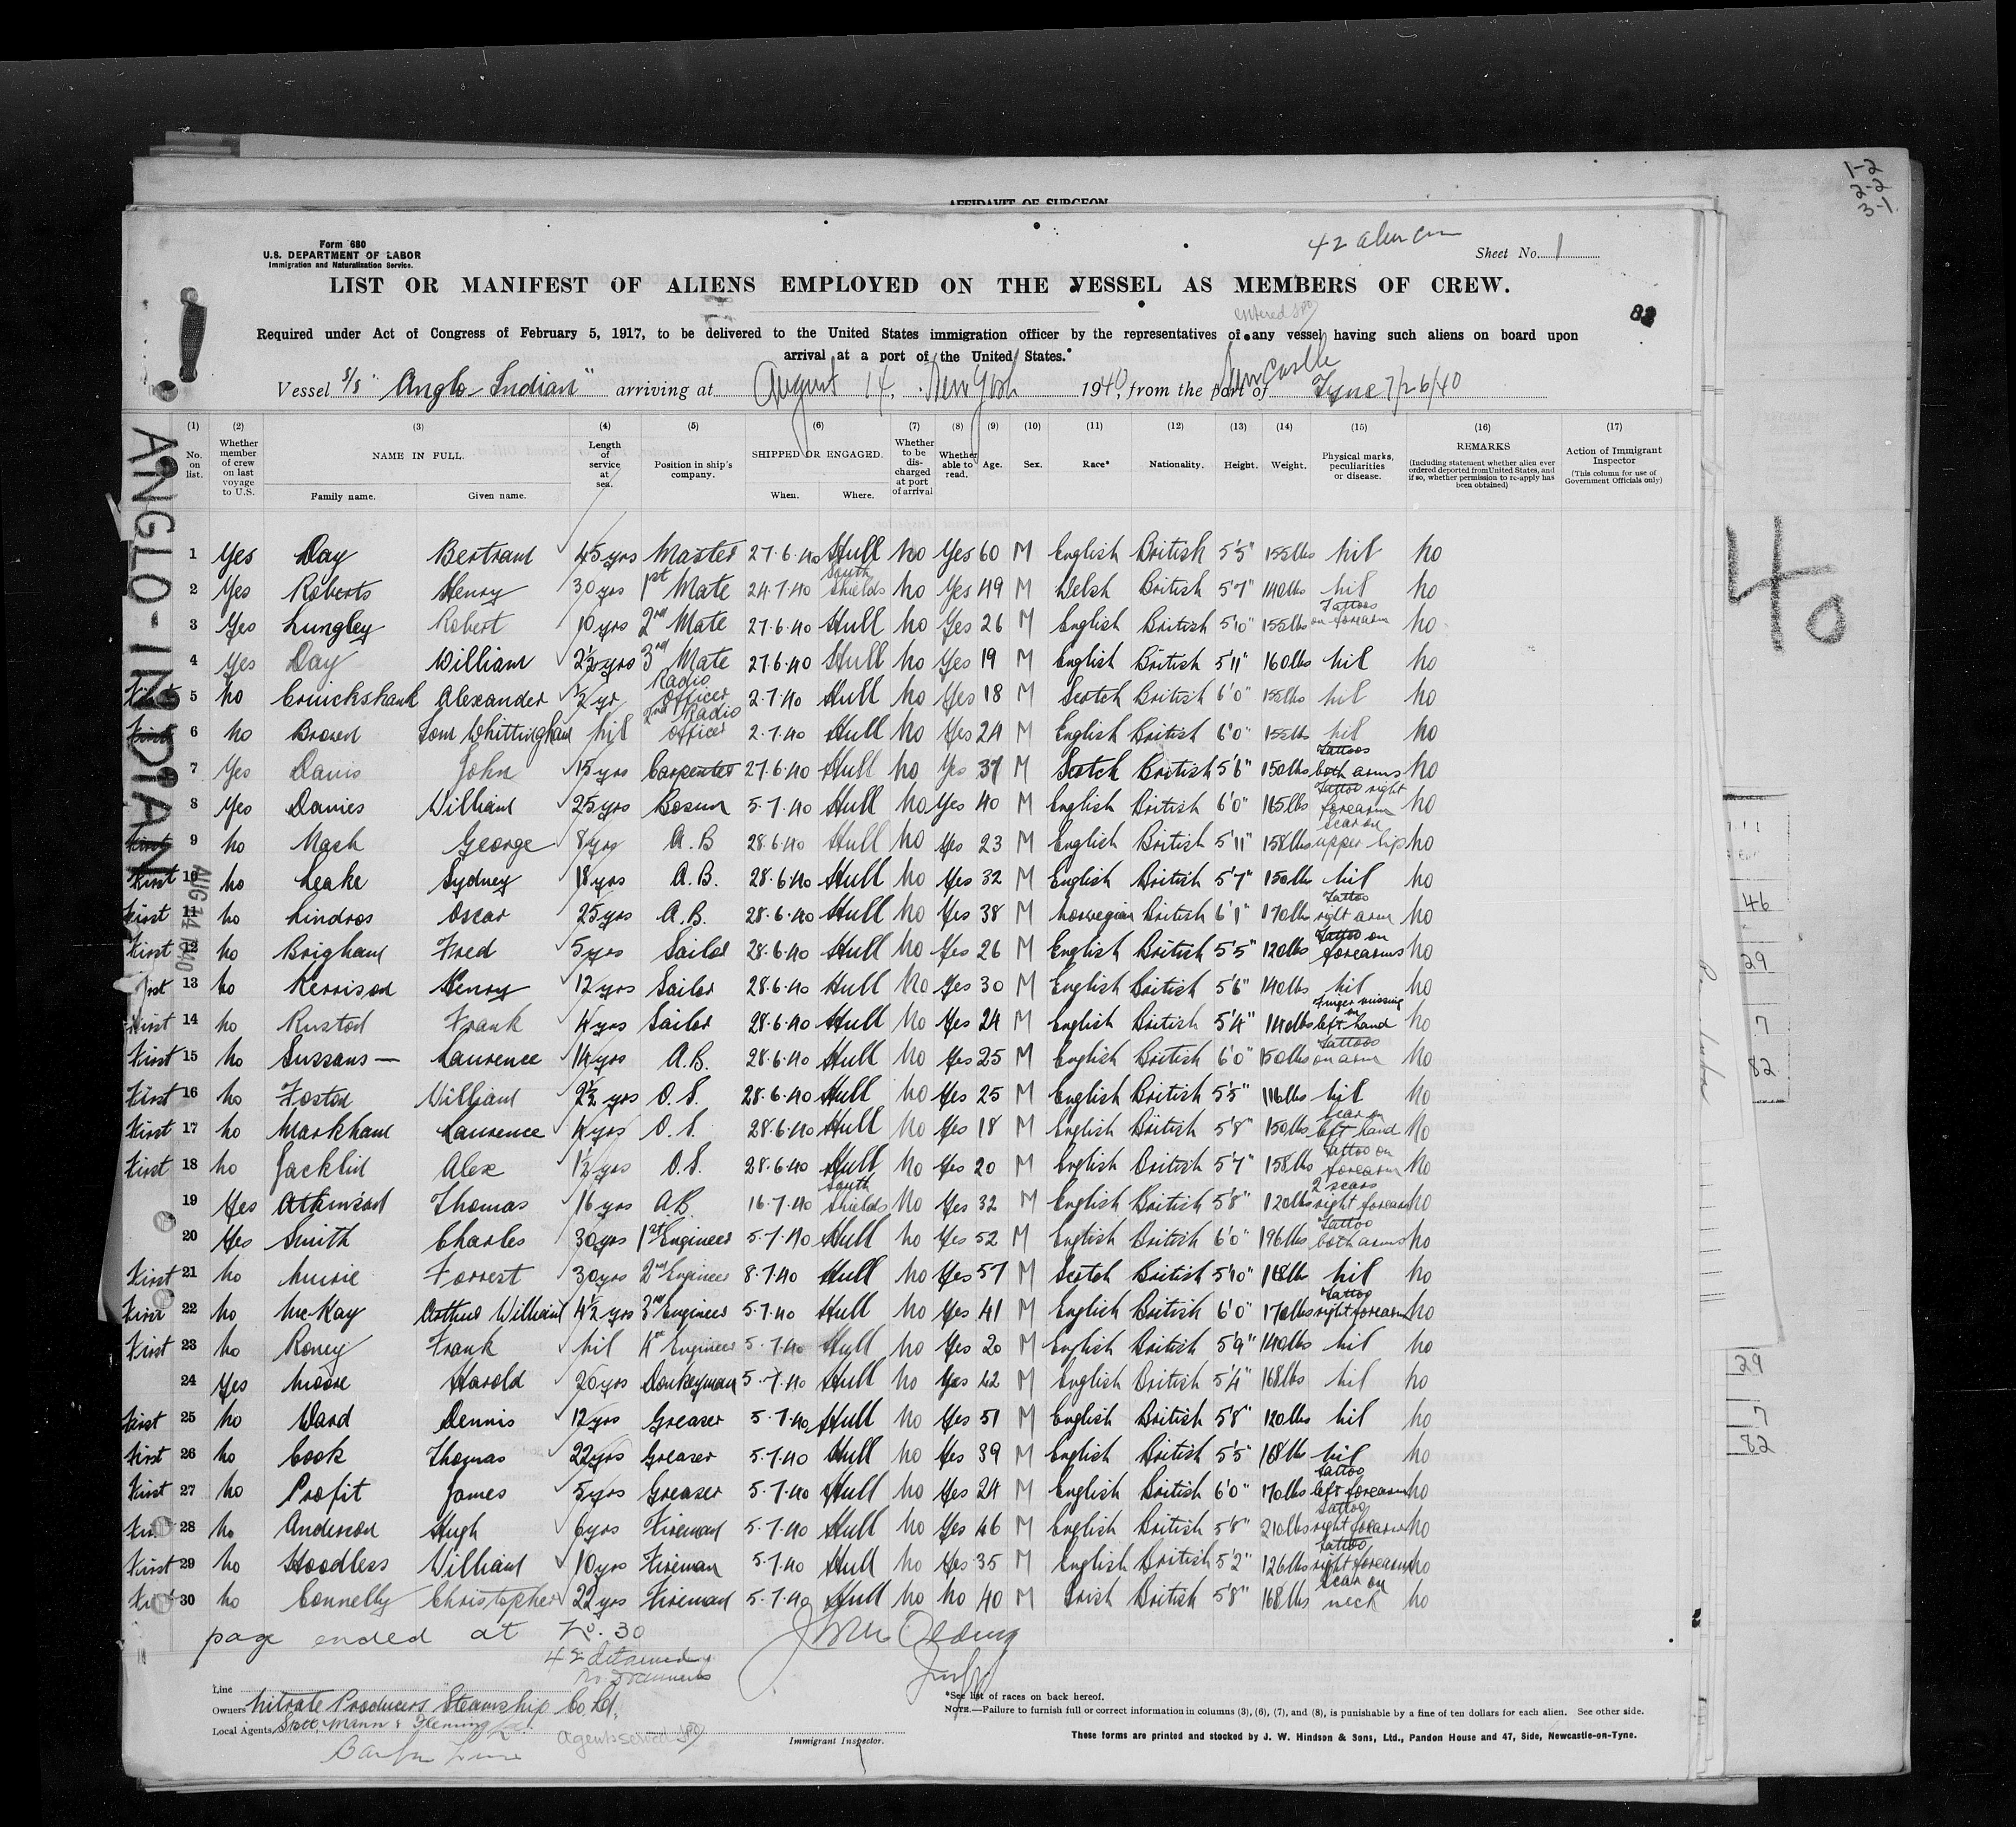 1-2
2-2
3-1
AFFIDAVIT OF SURGEON
Form 680
U.S. DEPARTMENT OF LABOR
Immigration and Naturalization Service.
42 alien
Sheet No. 1
LIST OR MANIFEST OF ALIENS EMPLOYED ON THE VESSEL AS MEMBERS OF CREW.
Required under Act of Congress of February 5, 1917, to be delivered to the United States immigration officer by the representatives of any vessel having such aliens on board upon
arrival at a port of the United States.
Vessel S/S "Anglo-Indian" arriving at August 14, New York 1940, from the port of Newcastle Tyne 7/26/40
ANGLO-INDIAN
AUG 14 1940
(1) (2) (3) (4) (5) (6) (7) (8) (9) (10) (11) (12) (13) (14) (15) (16) (17)
No. on list.
Whether member of crew on last voyage to U.S.
NAME IN FULL.
Family name. Given name.
Length of service at sea.
Position in ship's company.
SHIPPED OR ENGAGED.
When. Where.
Whether to be discharged at port of arrival
Whether able to read.
Age. Sex. Race* Nationality. Height. Weight.
Physical marks, peculiarities or disease.
REMARKS
(Including statement whether alien ever ordered deported from United States, and if so, whether permission to re-apply has been obtained)
Action of Immigrant Inspector
(This column for use of Government Officials only)
1 Yes Day Bertram 45 yrs Master 27.6.40 Hull No Yes 60 M English British 5'5" 155lbs nil No
2 Yes Roberts Henry 30 yrs 1st Mate 24.7.40 South Shields No Yes 49 M Welsh British 5'7" 140lbs nil No
3 Yes Lungley Robert 10 yrs 2nd Mate 27.6.40 Hull No Yes 26 M English British 5'10" 155lbs Tattoos on forearm No
4 Yes Day William 2½ yrs 3rd Mate 27.6.40 Hull No Yes 19 M English British 5'11" 160lbs nil No
First 5 No Cruickshank Alexander ½ yr Radio Officer 2.7.40 Hull No Yes 18 M Scotch British 6'0" 155lbs nil No
First 6 No Brown Tom Whittingham nil 2nd Radio Officer 2.7.40 Hull No Yes 24 M English British 6'0" 155lbs nil No
7 Yes Davis John 15 yrs Carpenter 27.6.40 Hull No Yes 37 M Scotch British 5'6" 150lbs Tattoos both arms No
8 Yes Davies William 25 yrs Bosun 5.7.40 Hull No Yes 40 M English British 6'0" 165lbs Tattoo right forearm No
First 9 No Mack George 8 yrs A.B 28.6.40 Hull No Yes 23 M English British 5'11" 158lbs scar on upper lip No
First 10 No Leake Sydney 18 yrs A.B. 28.6.40 Hull No Yes 32 M English British 5'7" 150lb nil No
First 11 No Lindros Oscar 25 yrs A.B. 28.6.40 Hull No Yes 38 M Norwegian British 6'1" 170lbs Tattoo right arm No
First 12 No Brigham Fred 5 yrs Sailor 28.6.40 Hull No Yes 26 M English British 5'5" 120lbs Tattoo on forearms No
First 13 No Kerrison Henry 12 yrs Sailor 28.6.40 Hull No Yes 30 M English British 5'6" 140lbs nil No
First 14 No Ruston Frank 4 yrs Sailor 28.6.40 Hull No Yes 24 M English British 5'4" 140lbs Finger missing on left hand No
First 15 No Sussans Laurence 14 yrs A.B. 28.6.40 Hull No Yes 25 M English British 6'0" 150lbs Tattoos on arm No
First 16 No Foston William 2½ yrs O.S. 28.6.40 Hull No Yes 25 M English British 5'5" 116lbs nil No
First 17 No Markham Laurence 4 yrs O.S. 28.6.40 Hull No Yes 18 M English British 5'8" 150lbs Scar on left hand No
First 18 No Jacklin Alex 1½ yrs O.S. 28.6.40 Hull No Yes 20 M English British 5'7" 158lbs Tattoo on forearm No
19 Yes Atkinson Thomas 16 yrs AB. 16.7.40 South Shields No Yes 32 M English British 5'8" 120lbs 2 scars right forearm No
20 Yes Smith Charles 30 yrs 1st Engineer 5.7.40 Hull No Yes 52 M English British 6'0" 196lbs Tattoo both arms No
First 21 No Muirie Forrest 30 yrs 2nd Engineer 8.7.40 Hull No Yes 57 M Scotch British 5'10" 168lbs nil No
First 22 No McKay Arthur William 4½ yrs 3rd Engineer 5.7.40 Hull No Yes 41 M English British 6'0" 170lbs Tattoo right forearm No
First 23 No Roney Frank nil 4th Engineer 5.7.40 Hull No Yes 20 M English British 5'9" 140lbs nil No
24 Yes Moore Harold 20 yrs Donkeyman 5.7.40 Hull No Yes 42 M English British 5'4" 168lbs nil No
First 25 No Ward Dennis 12 yrs Greaser 5.7.40 Hull No Yes 51 M English British 5'8" 120lbs nil No
First 26 No Cook Thomas 22 yrs Greaser 5.7.40 Hull No Yes 39 M English British 5'5" 168lbs nil No
First 27 No Profit James 5 yrs Greaser 5.7.40 Hull No Yes 24 M English British 6'0" 170lbs Tattoo left forearm No
28 No Anderson Hugh 6 yrs Fireman 5.7.40 Hull No Yes 46 M English British 5'8" 210lbs Tattoo right forearm No
First 29 No Hoodless William 10 yrs Fireman 5.7.40 Hull No Yes 35 M English British 5'2" 126lbs Tattoo right forearm No
30 No Connelly Christopher 22 yrs Fireman 5.7.40 Hull No No 40 M Irish British 5'8" 168lbs scar on neck No
page ended at No. 30
42 detained
no documents
Line
Owners Nitrate Producers Steamship Co. Ld.
Local Agents, Scott, Mann & Fleming Ld.
Barber Line
Agents served
Immigrant Inspector.
*See list of races on back hereof.
NOTE.—Failure to furnish full or correct information in columns (3), (6), (7), and (8), is punishable by a fine of ten dollars for each alien. See other side.
These forms are printed and stocked by J. W. Hindson & Sons, Ltd., Pandon House and 47, Side, Newcastle-on-Tyne.
40
46
29
7
82
29
7
82